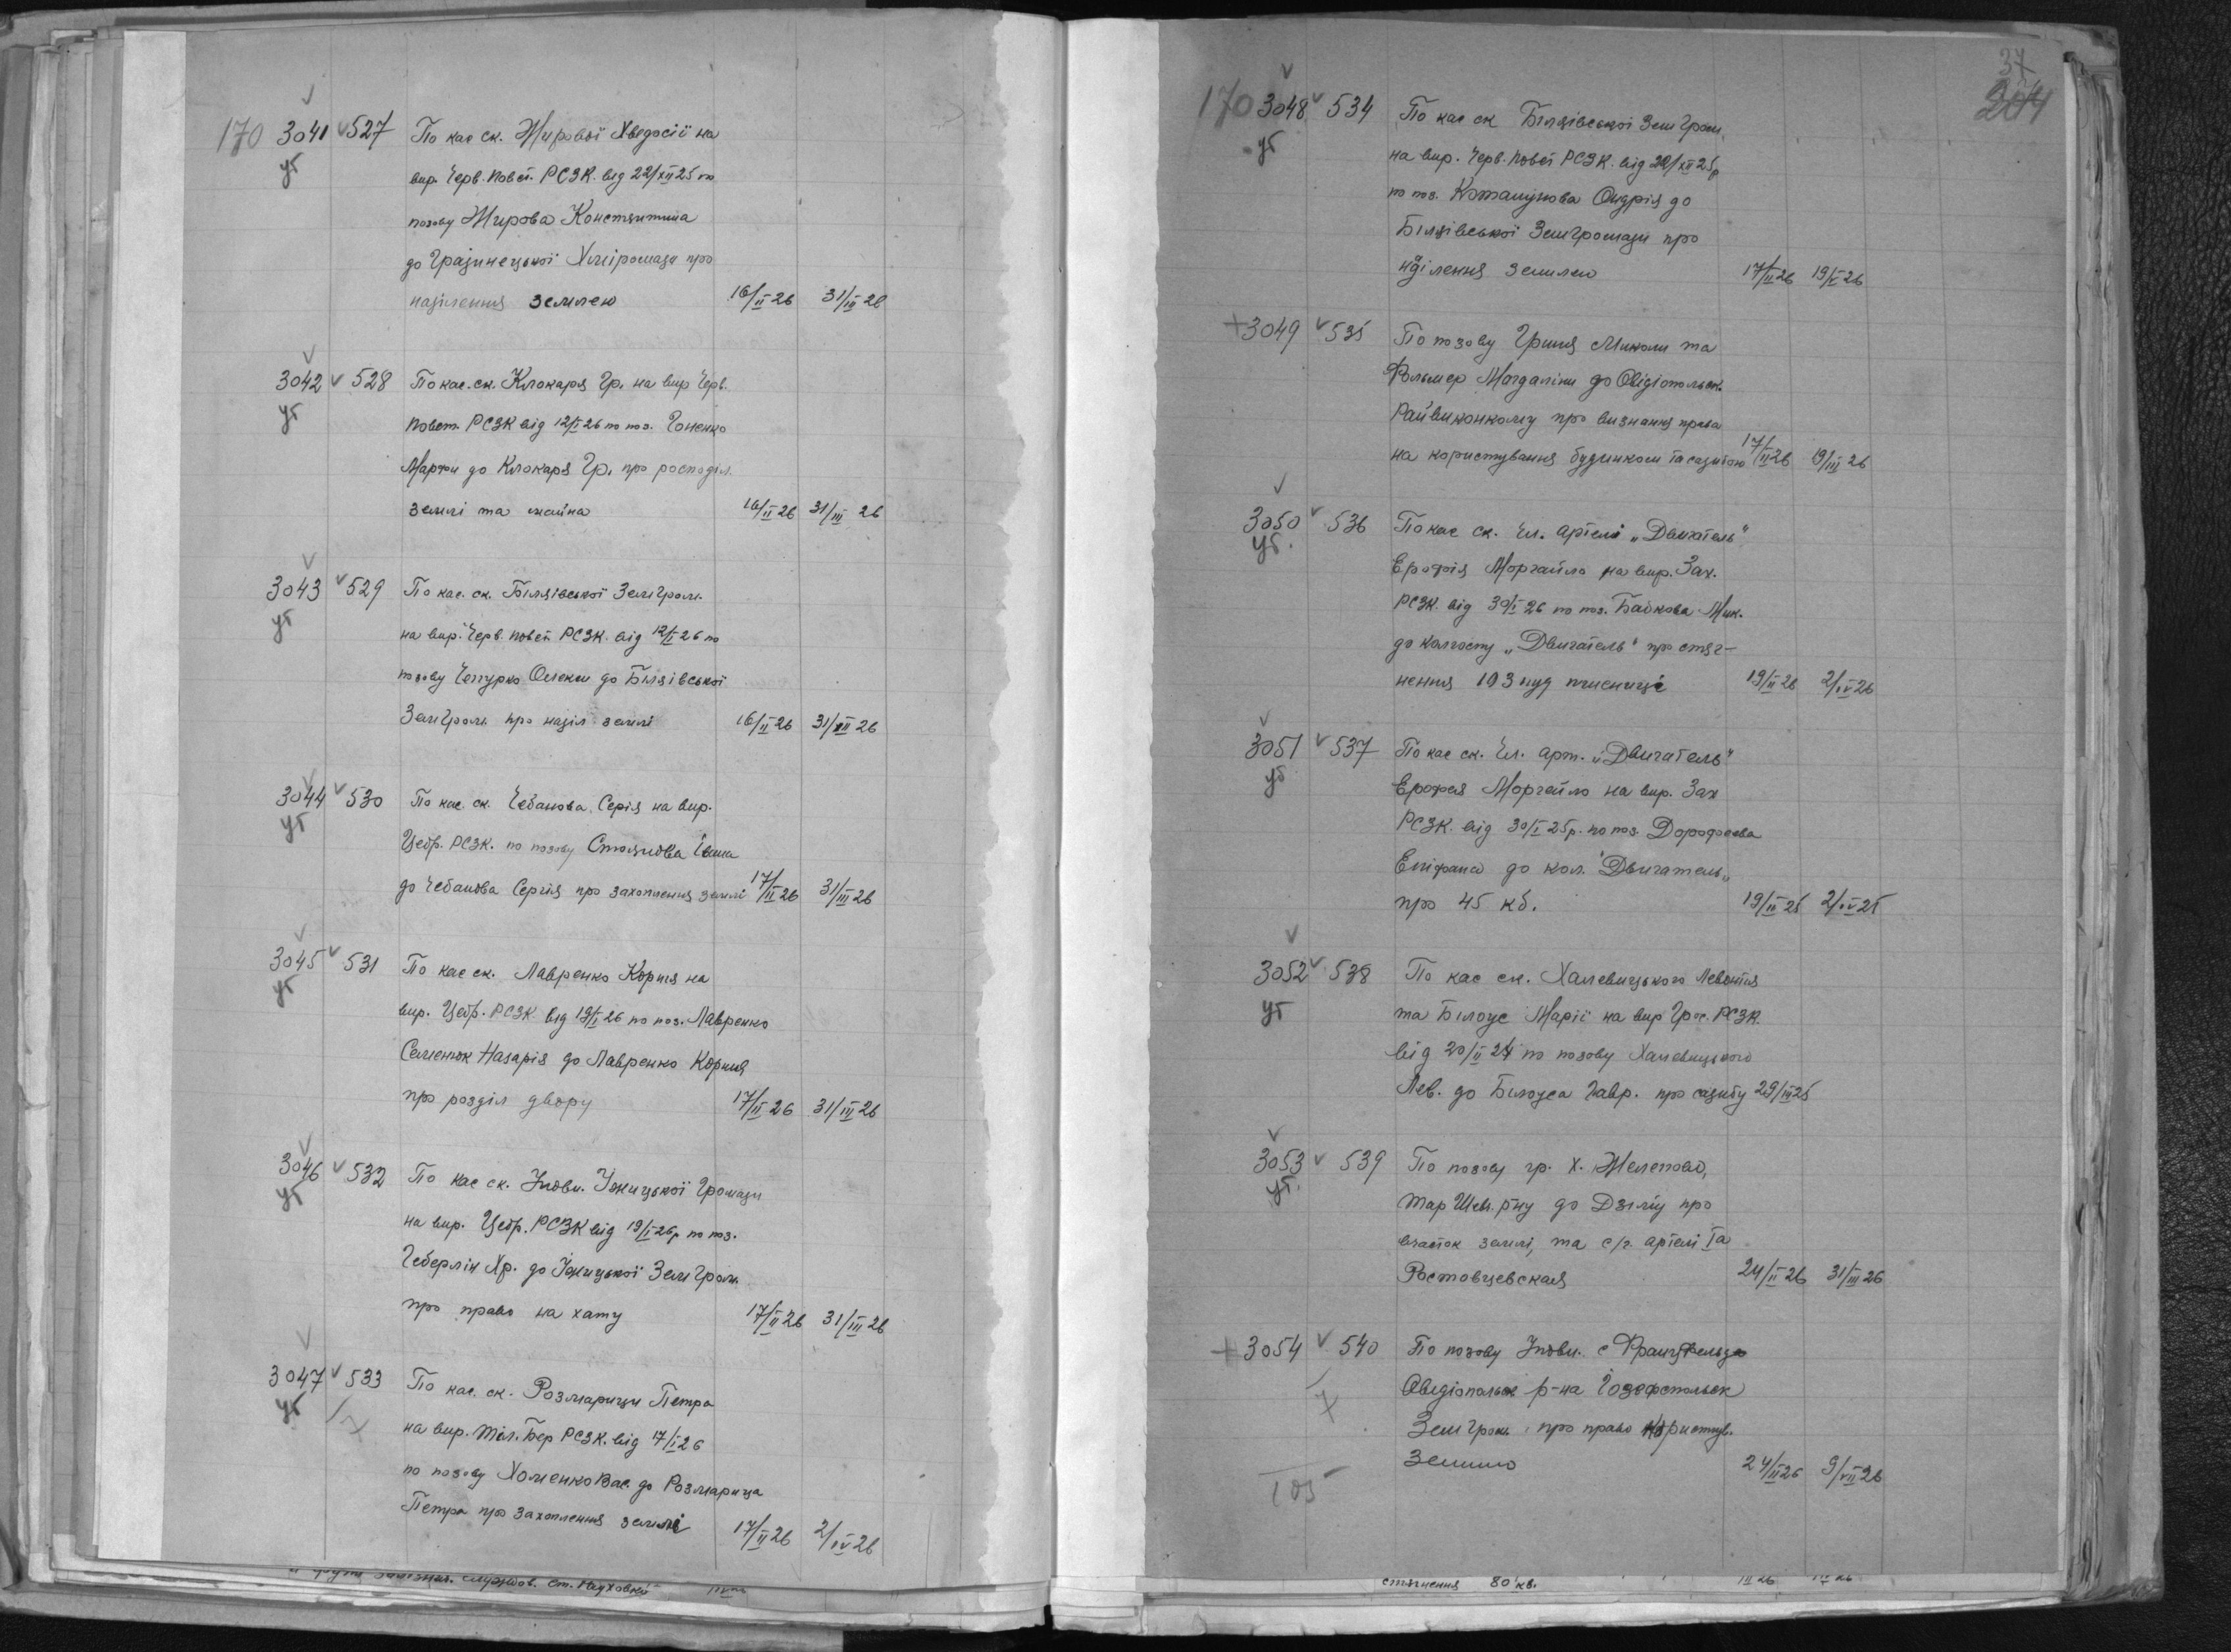 170 3041 527 По кас ск. Жирової Хведосії на
уб вир. Черв. Повіт. РСЗК. від 22/XII 25 по
позову Жирова Констянтина
до Градинецької про
наділення землею 16/II 26 31/III 26
3042 528 По кас. ск. Клокаря Гр. на вир Черв.
уб Повіт. РСЗК від 12/I 26 по поз. Гоненко
Марфи до Клокаря Гр. про росподіл.
землі та майна 16/II 26 31/III 26
3043 529 По кас. ск. Біляівської ЗемГром.
уб на вир. Черв. Повіт. РСЗК. від 12/I 26 по
позову Чепурко Олекси до Біляівської
ЗемГром. про наділ землі 16/II 26 31/III 26
3044 530 По кас. ск. Чебанова Серія на вир.
уб Цебр. РСЗК. по позову Стоянова Івана
до Чебанова Сергія про захоплення землі 17/II 26 31/III 26
3045 531 По кас ск. Лавренко Корнія на
уб вир. Цебр. РСЗК від 19/I 26 по поз. Лавренко
Семенюк Назарія до Лавренко Корнія
про розділ двору 17/II 26 31/III 26
3046 532 По кас ск. Уповн. Громади
уб на вир. Цебр. РСЗК від 19/I 26р по поз.
Геберлін Хр. до ЗемГром.
про право на хату 17/II 26 31/III 26
3047 533 По кас. ск. Розмарици Петра
уб на вир. Тил. Бер РСЗК. від 17/I 26
по позову Хоменко Вас. до Розмарица
Петра про захоплення землі 17/II 26 2/IV 26
37
204
170 3048 534 По кас ск Біляівської ЗемГром.
уб на вир. Черв. Повіт РСЗК. від 22/XII 25р
по поз. Ондрія до
Біляівської ЗемГромади про
наділення землею 17/II 26 19/V 26
+3049 535 По позову Гриня Миколи та
Фольмер Магдаліни до Овідіопольськ.
Райвиконкому про визнання права
на користування будинком та садибою 17/II 26 19/III 26
3050 536 По кас ск. Чл. артелі „Двигатель"
уб. Ерофія Моргайло на вир. Зах.
РСЗК. від 30/I 26 по поз. Байкова Мик.
до колгоспу „Двигатель" про стяг-
нення 103 пуд пшениці 19/II 26 2/IV 26
3051 537 По кас ск. Чл. арт. „Двигатель"
уб Ерофея Моргайло на вир. Зах
РСЗК. від 30/I 25р. по поз. Дорофеєва
Епіфана до кол. "Двигатель„
про 45 кб. 19/II 25 2/IV 25
3052 538 По кас ск. Халевицького Левонтія
уб та Білоус Марії на вир Грос. РСЗК.
від 20/II 24 по позову Халевицького
Лев. до Білоуса Гавр. про садибу 29/III 25
3053 539 По позову гр. х. Желепово,
уб. Тар Шев. р-ну до Дзіліу про
власток землі, та с/г. артелі Та
Ростовцевская 24/II 26 31/III 26
+3054 540 По позову Уповн. с Францфельда
Овідіопольськ р-на Йозефстальск
ЗемГром. про право користув.
Землею 24/II 26 9/VII 26
105
ст.
стягнення 80 кв.